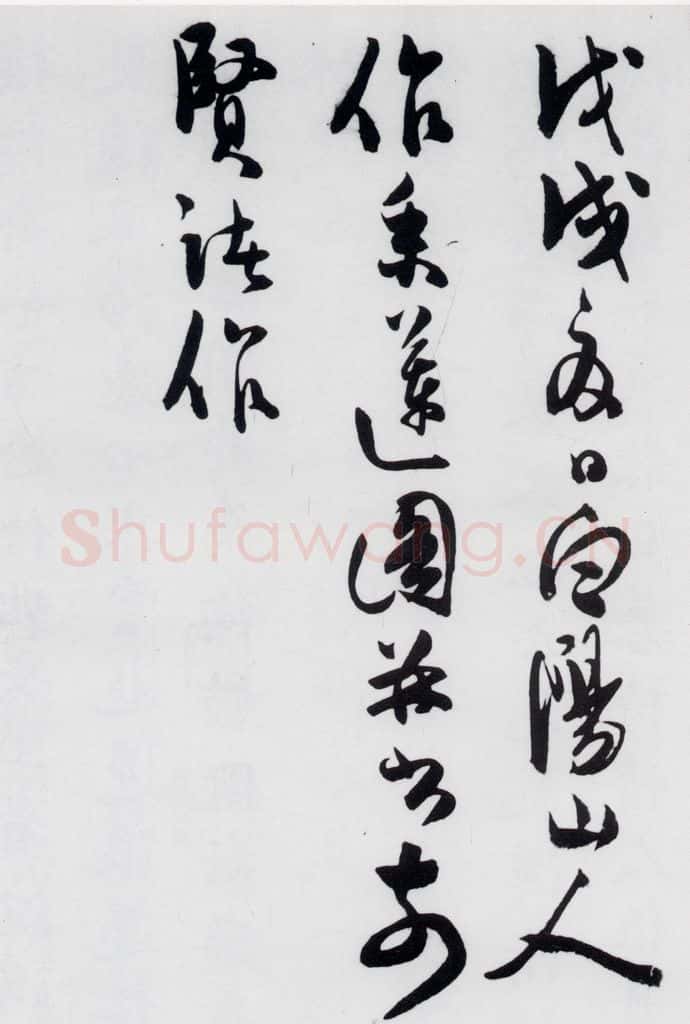 戊戌夏日白陽山人
作采蓮圖并書前
賢諸作
Shufawang.CN